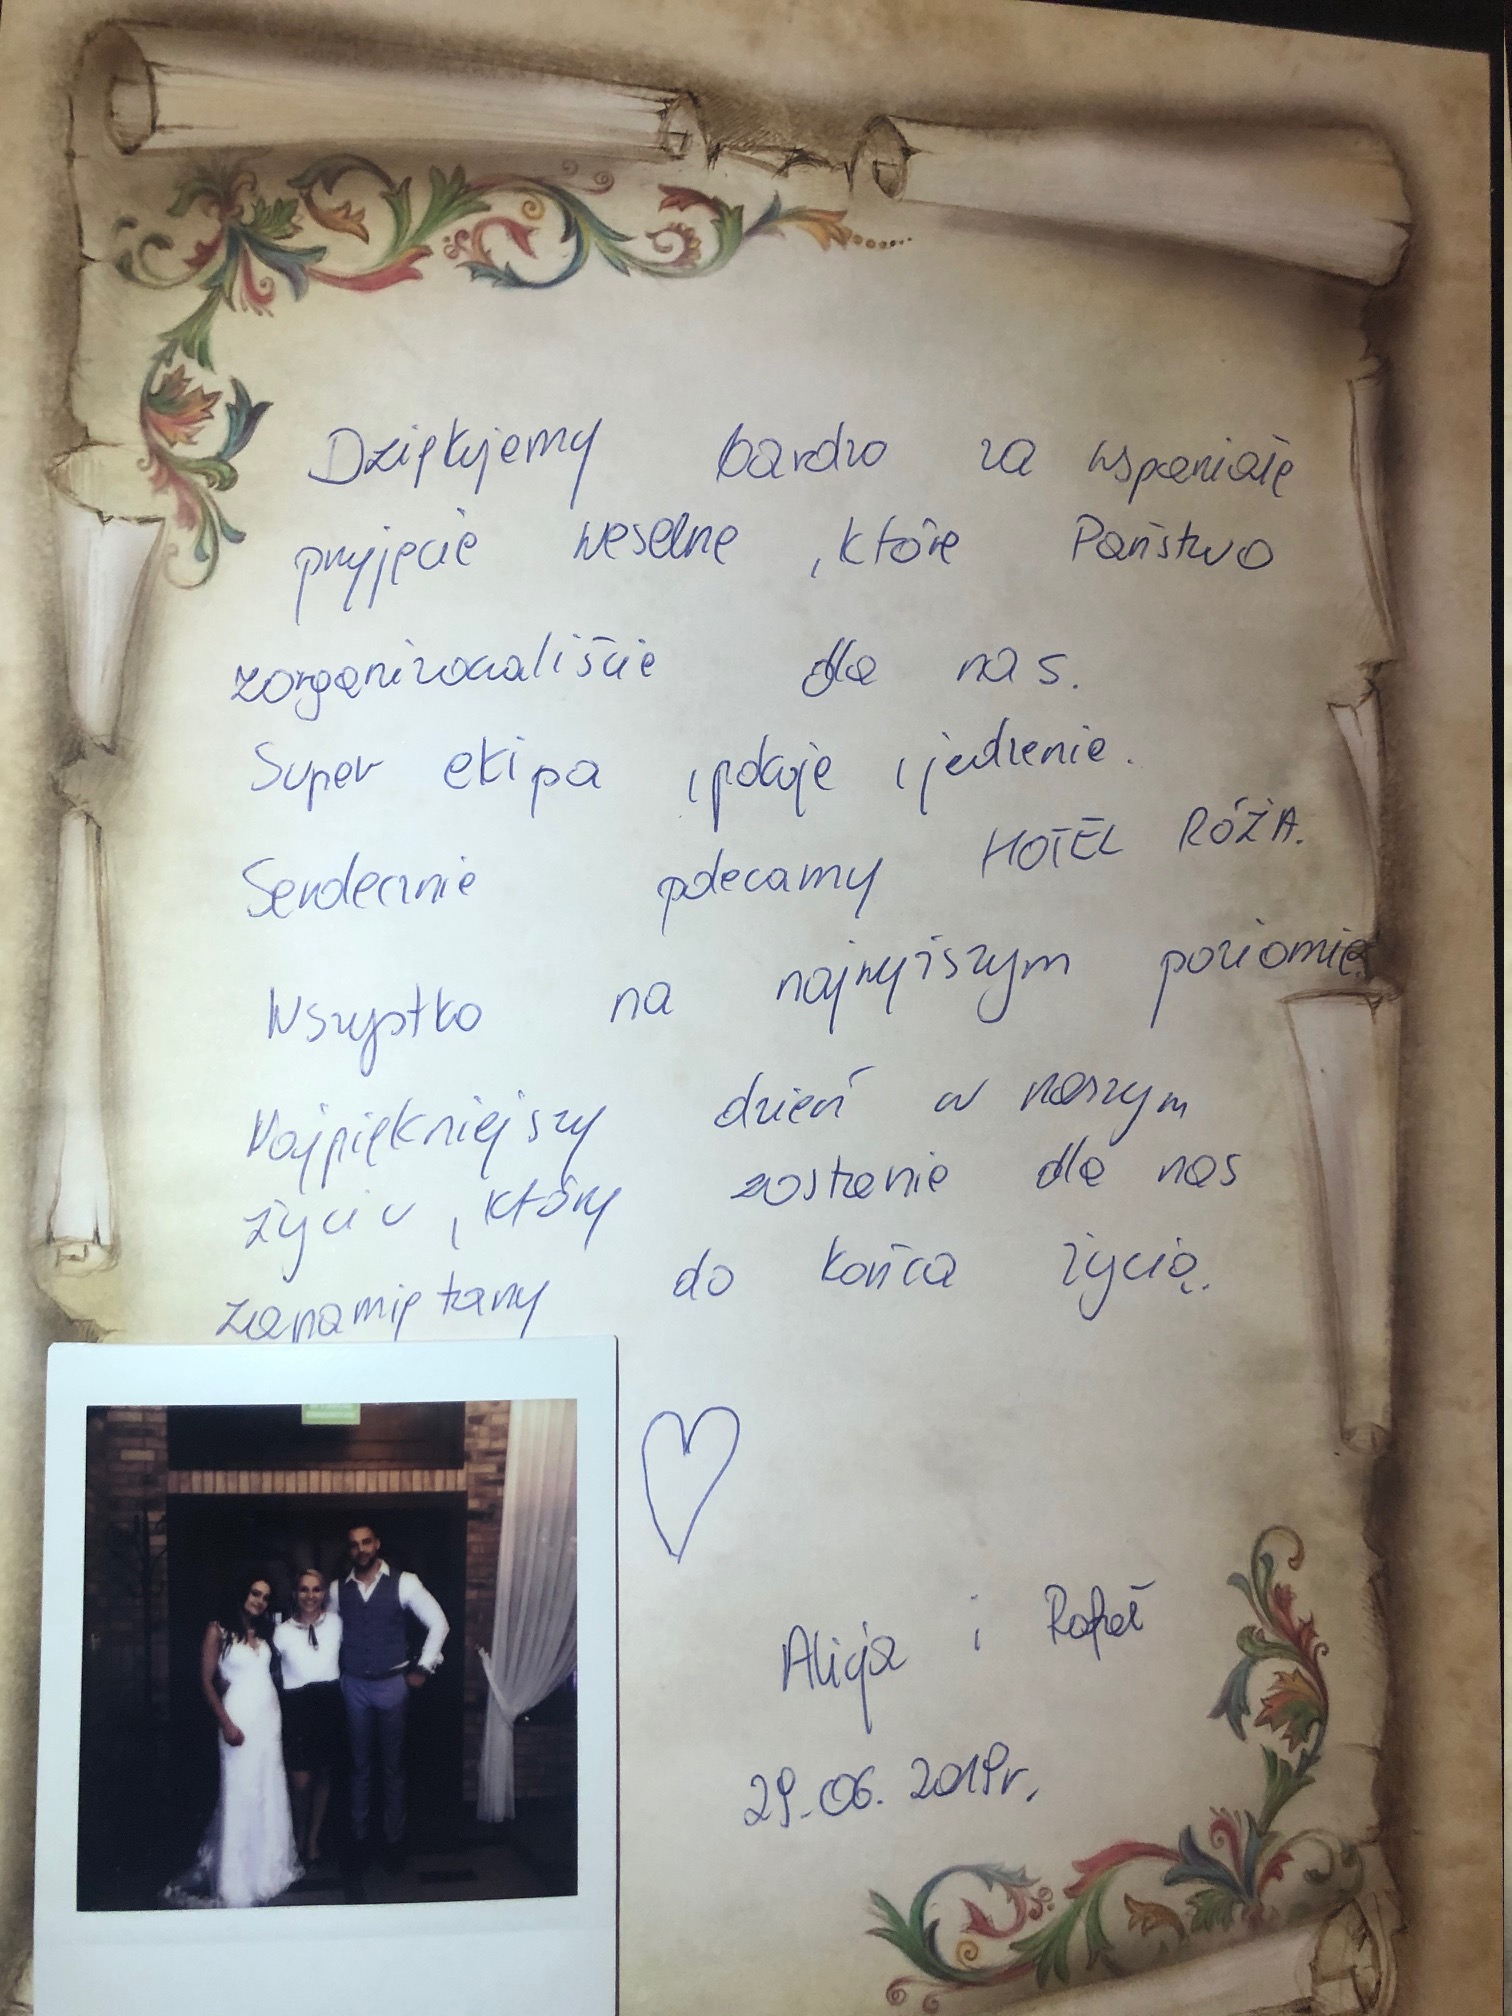 Dziękujemy bardzo za wspaniałe
przyjęcie weselne, które Państwo
zorganizowaliście dla nas.
Super ekipa, pokoje i jedzenie.
Serdecznie polecamy HOTEL RÓŻA.
Wszystko na najwyższym poziomie.
Najpiękniejszy dzień w naszym
życiu, który zostanie dla nas
zapamiętany do końca życia.
Alicja i Rafał
29.06.2019r.